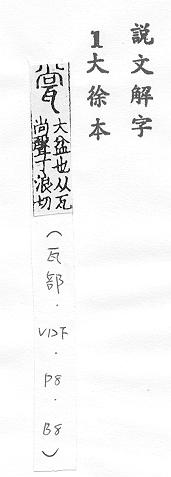 説文解字
1大徐本
㼕
大盆也从瓦
尚聲丁浪切
（瓦部．V12下．P8．B8）